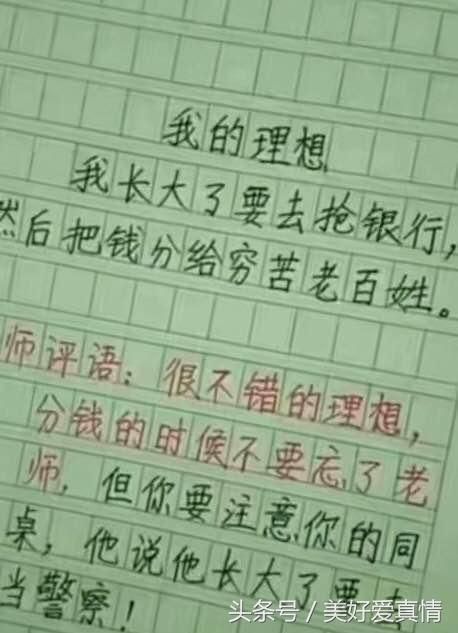 我的理想
我长大了要去抢银行，
然后把钱分给穷苦老百姓。
师评语：很不错的理想，
分钱的时候不要忘了老
师，但你要注意你的同
桌，他说他长大了要去
当警察！
头条号／美好爱真情